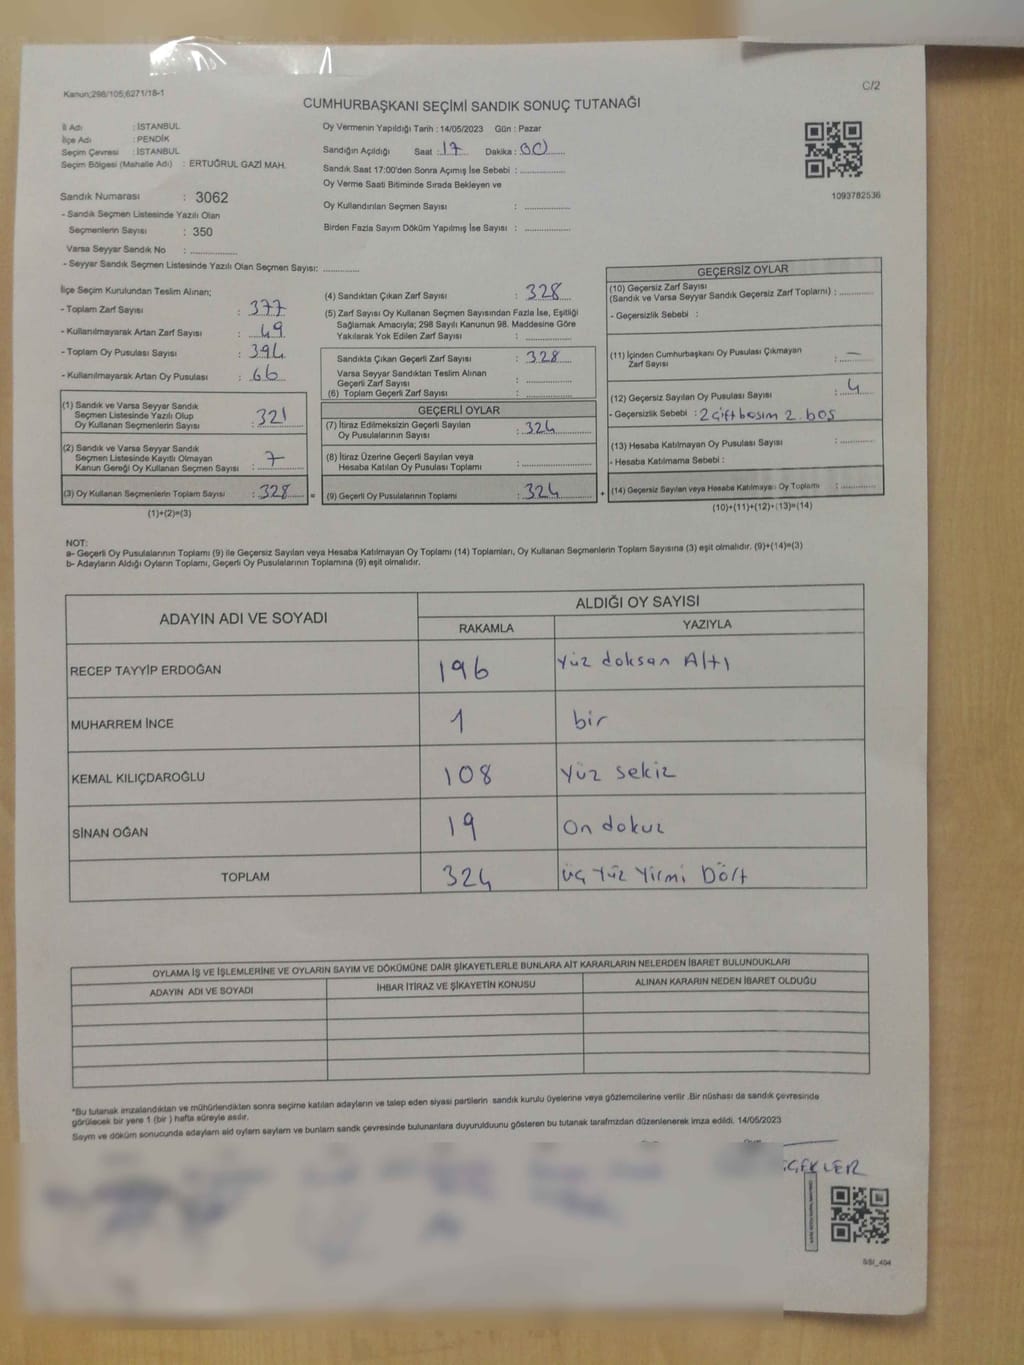 Kanun;298/105;6271/18-1
C/2
CUMHURBAŞKANI SEÇİMİ SANDIK SONUÇ TUTANAĞI
İl Adı : İSTANBUL
İlçe Adı : PENDİK
Seçim Çevresi : İSTANBUL
Seçim Bölgesi (Mahalle Adı) : ERTUĞRUL GAZİ MAH.
Sandık Numarası : 3062
- Sandık Seçmen Listesinde Yazılı Olan
Seçmenlerin Sayısı : 350
Varsa Seyyar Sandık No : ..............
- Seyyar Sandık Seçmen Listesinde Yazılı Olan Seçmen Sayısı: ..........
Oy Vermenin Yapıldığı Tarih : 14/05/2023 Gün : Pazar
Sandığın Açıldığı Saat : 17 Dakika : 00
Sandık Saat 17:00'den Sonra Açımış İse Sebebi : ..............
Oy Verme Saati Bitiminde Sırada Bekleyen ve
Oy Kullandırılan Seçmen Sayısı : ..............
Birden Fazla Sayım Döküm Yapılmış İse Sayısı : ..............
1093782536
İlçe Seçim Kurulundan Teslim Alınan;
- Toplam Zarf Sayısı : 377
- Kullanılmayarak Artan Zarf Sayısı : 49
- Toplam Oy Pusulası Sayısı : 394
- Kullanılmayarak Artan Oy Pusulası : 66
(1) Sandık ve Varsa Seyyar Sandık
Seçmen Listesinde Yazılı Olup
Oy Kullanan Seçmenlerin Sayısı : 321
(2) Sandık ve Varsa Seyyar Sandık
Seçmen Listesinde Kayıtlı Olmayan
Kanun Gereği Oy Kullanan Seçmen Sayısı : 7
(3) Oy Kullanan Seçmenlerin Toplam Sayısı : 328 =
(1)+(2)=(3)
(4) Sandıktan Çıkan Zarf Sayısı : 328
(5) Zarf Sayısı Oy Kullanan Seçmen Sayısından Fazla İse, Eşitliği
Sağlamak Amacıyla; 298 Sayılı Kanunun 98. Maddesine Göre
Yakılarak Yok Edilen Zarf Sayısı : ..............
Sandıkta Çıkan Geçerli Zarf Sayısı : 328
Varsa Seyyar Sandıktan Teslim Alınan
Geçerli Zarf Sayısı : ..............
(6) Toplam Geçerli Zarf Sayısı : ..............
GEÇERLİ OYLAR
(7) İtiraz Edilmeksizin Geçerli Sayılan
Oy Pusulalarının Sayısı : 324
(8) İtiraz Üzerine Geçerli Sayılan veya
Hesaba Katılan Oy Pusulası Toplamı : ..............
(9) Geçerli Oy Pusulalarının Toplamı : 324 +
GEÇERSİZ OYLAR
(10) Geçersiz Zarf Sayısı
(Sandık ve Varsa Seyyar Sandık Geçersiz Zarf Toplamı) : ..........
- Geçersizlik Sebebi :
(11) İçinden Cumhurbaşkanı Oy Pusulası Çıkmayan
Zarf Sayısı : —
(12) Geçersiz Sayılan Oy Pusulası Sayısı : 4
- Geçersizlik Sebebi : 2 çift basım 2. boş
(13) Hesaba Katılmayan Oy Pusulası Sayısı : ..........
- Hesaba Katılmama Sebebi :
(14) Geçersiz Sayılan veya Hesaba Katılmayan Oy Toplamı : ..........
(10)+(11)+(12)+(13)=(14)
NOT:
a- Geçerli Oy Pusulalarının Toplamı (9) ile Geçersiz Sayılan veya Hesaba Katılmayan Oy Toplamı (14) Toplamları, Oy Kullanan Seçmenlerin Toplam Sayısına (3) eşit olmalıdır. (9)+(14)=(3)
b- Adayların Aldığı Oyların Toplamı, Geçerli Oy Pusulalarının Toplamına (9) eşit olmalıdır.
ADAYIN ADI VE SOYADI
ALDIĞI OY SAYISI
RAKAMLA YAZIYLA
RECEP TAYYİP ERDOĞAN 196 Yüz doksan Altı
MUHARREM İNCE 1 bir
KEMAL KILIÇDAROĞLU 108 Yüz sekiz
SİNAN OĞAN 19 On dokuz
TOPLAM 324 üç Yüz Yirmi Dört
OYLAMA İŞ VE İŞLEMLERİNE VE OYLARIN SAYIM VE DÖKÜMÜNE DAİR ŞİKAYETLERLE BUNLARA AİT KARARLARIN NELERDEN İBARET BULUNDUKLARI
ADAYIN ADI VE SOYADI İHBAR İTİRAZ VE ŞİKAYETİN KONUSU ALINAN KARARIN NEDEN İBARET OLDUĞU
*Bu tutanak imzalandıktan ve mühürlendikten sonra seçime katılan adayların ve talep eden siyasi partilerin sandık kurulu üyelerine veya gözlemcilerine verilir .Bir nüshası da sandık çevresinde
görülecek bir yere 1 (bir ) hafta süreyle asılır.
Sayım ve döküm sonucunda adayların ald oyların sayları ve bunların sandk çevresinde bulunanlara duyurulduunu gösteren bu tutanak tarafmzdan düzenlenerek imza edildi. 14/05/2023
SSI_404